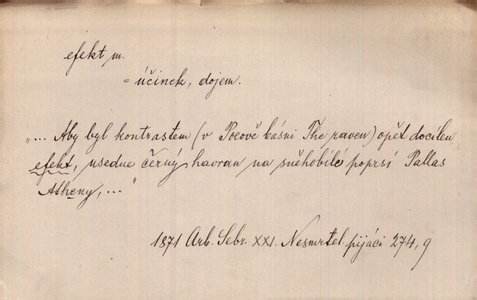 efekt m.
= účinek, dojem.
„... Aby byl kontrastem (v Poeově básni The raven) opět docílen
efekt, usedne černý havran na sněhobílé poprsí Pallas
Atheny, ... "
1871 Arb. Sebr. XXI. Nesmrtel. pijáci 274,9